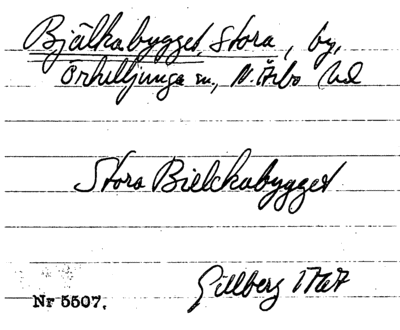 Bjälkabygget, Stora, by,
Örkelljunga sn, N. Åsbo hd
Stora Bielckabygget
Gillberg 1767
Nr 5507.